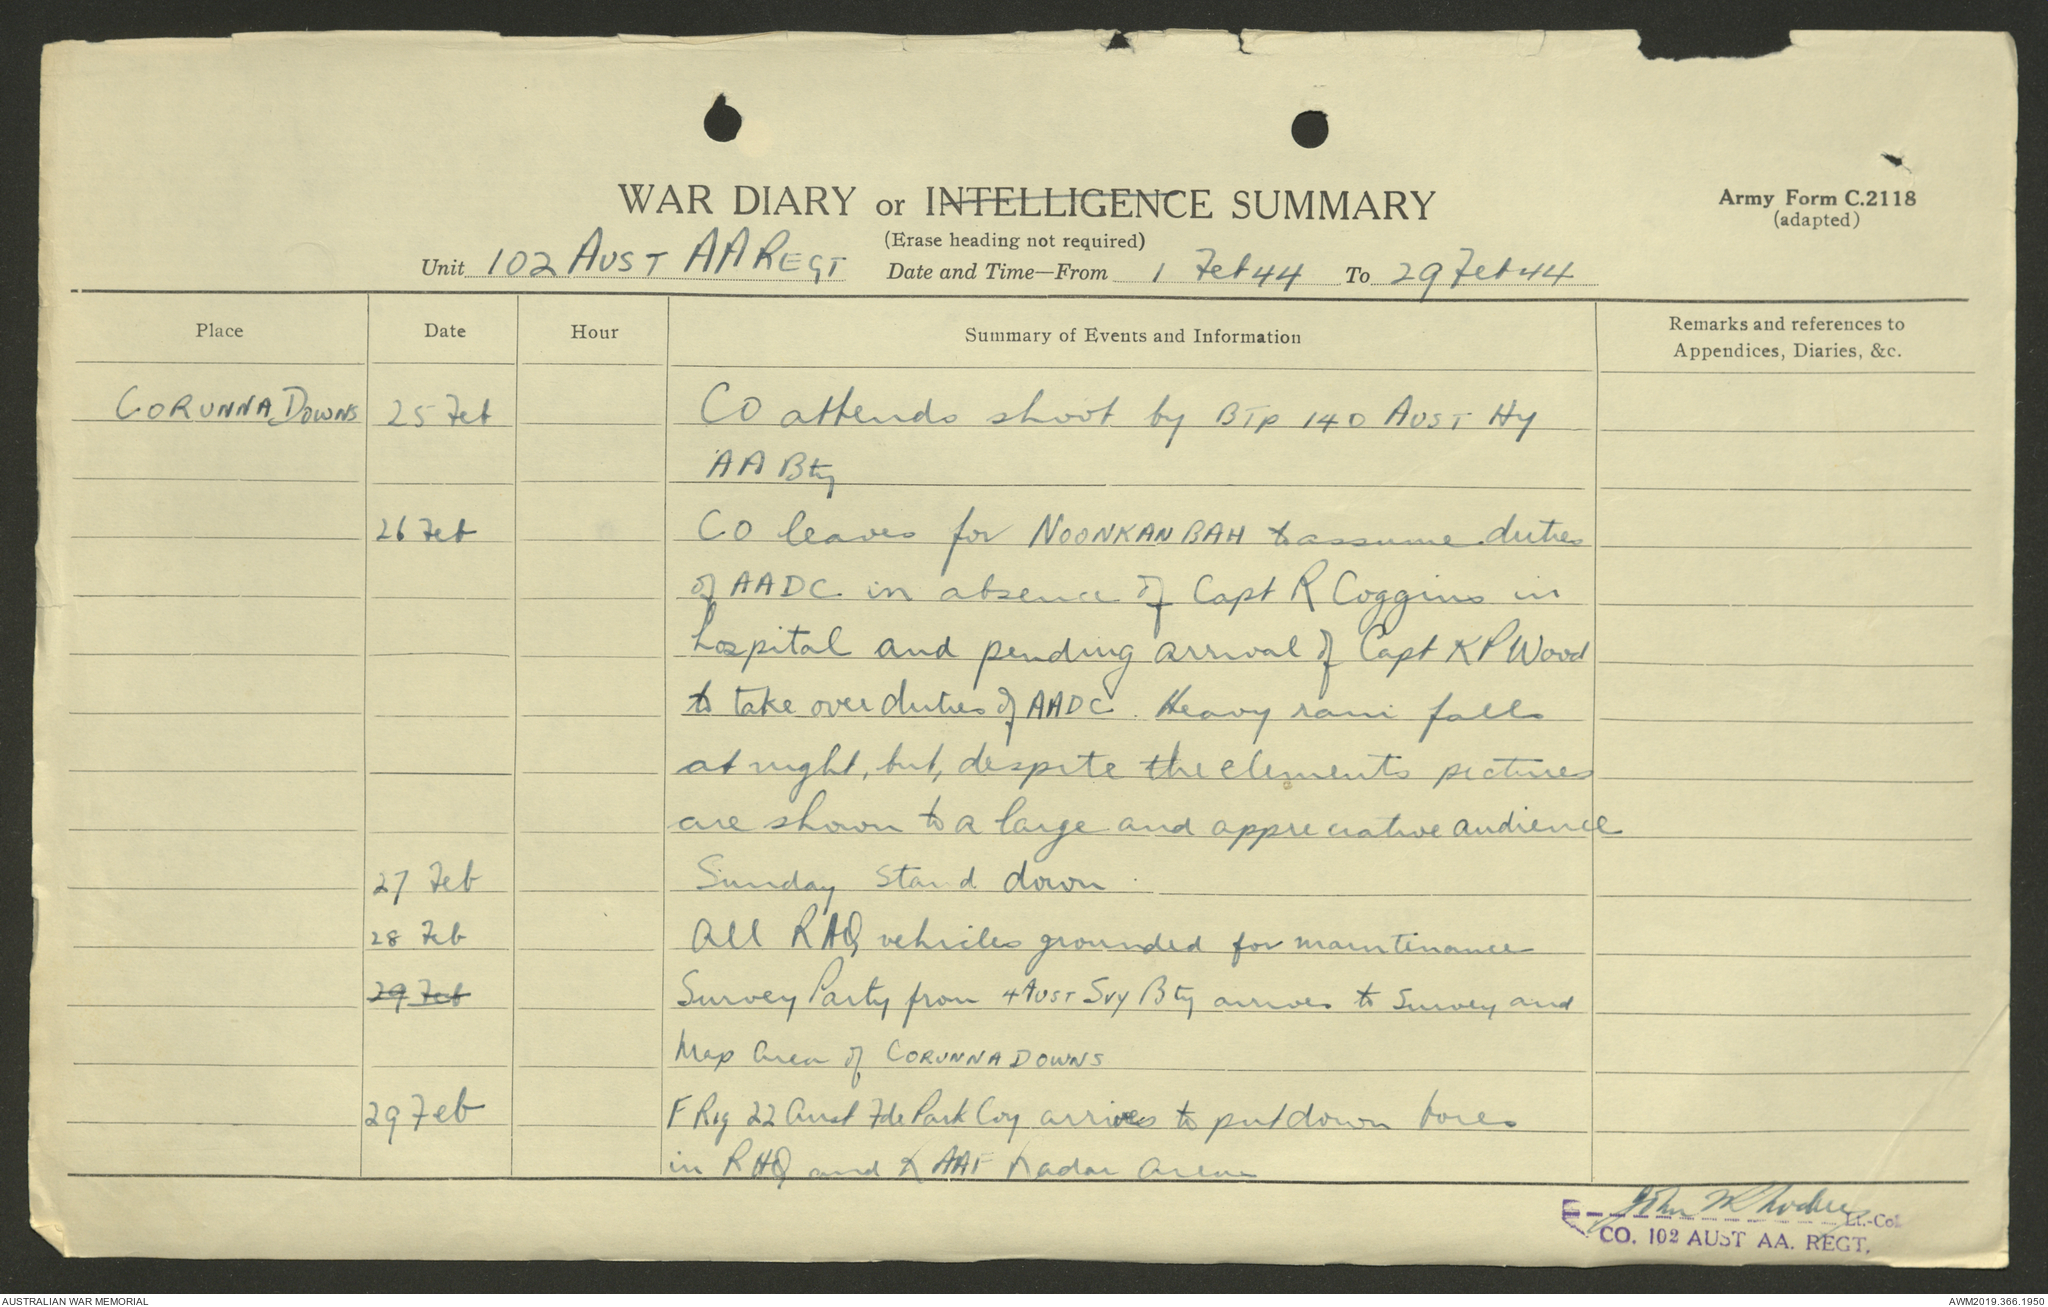 WAR DIARY or INTELLIGENCE SUMMARY
Army Form C.2118
(adapted)
(Erase heading not required)
Unit 102 AUST AA REGT Date and Time—From 1 Feb 44 To 29 Feb 44
Place Date Hour Summary of Events and Information Remarks and references to
Appendices, Diaries, &c.
CORUNNA DOWNS 25 Feb CO attends shoot by BTP 140 AUST Hy
AA Bty
26 Feb CO leaves for NOONKANBAH to assume duties
of AADC in absence of Capt R Coggins in
hospital and pending arrival of Capt K P Wood
to take over duties of AADC. Heavy rain falls
at night, but, despite the elements pictures
are shown to a large and appreciative audience
27 Feb Sunday Stand down
28 Feb All RHQ vehicles grounded for maintenance
29 Feb Survey Party from 4 AUST Svy Bty arrives to Survey and
Map area of CORUNNA DOWNS
29 Feb F Rig 22 Aust Fde Park Coy arrives to put down bores
in RHQ and RAAF Radar areas
John Lt.-Col.
CO. 102 AUST AA. REGT.
AUSTRALIAN WAR MEMORIAL
AWM2019.366.1950